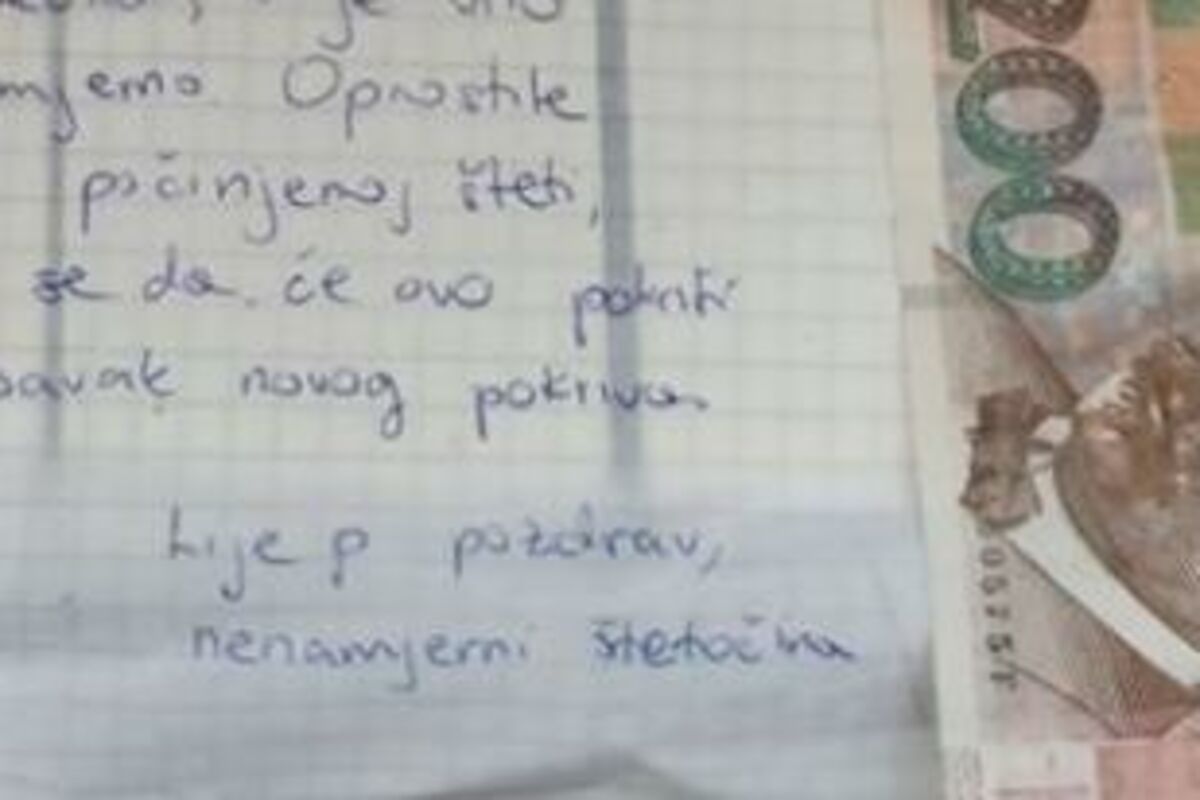 je vrlo
Oprostite
počinjenoj šteti,
se da će ovo pokriti
novog pokriva
Lijep pozdrav,
nenamjerni štetočina
200